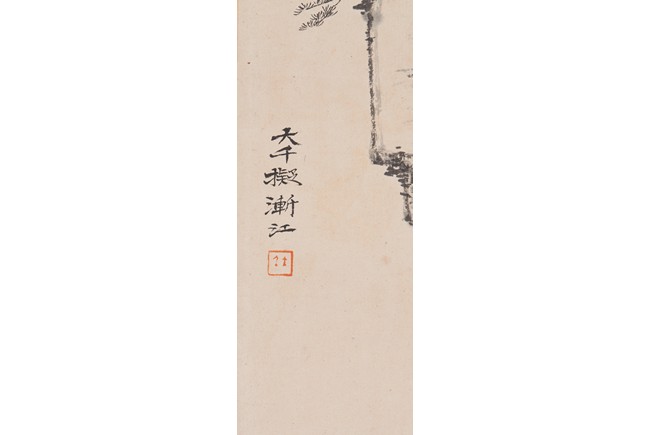 大千擬漸江